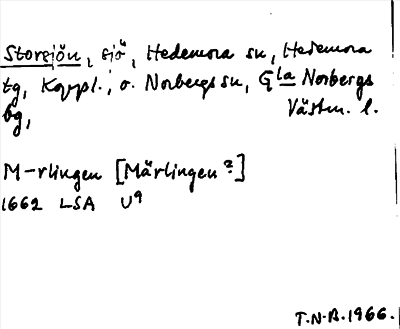 Storsjön, sjö, Hedemora sn, Hedemora
tg, Koppl., o. Norbergs sn, Gla Norbergs
bg, Västm. l.
M-rlingen [Märlingen?]
1662 LSA U9
T.N-B. 1966.